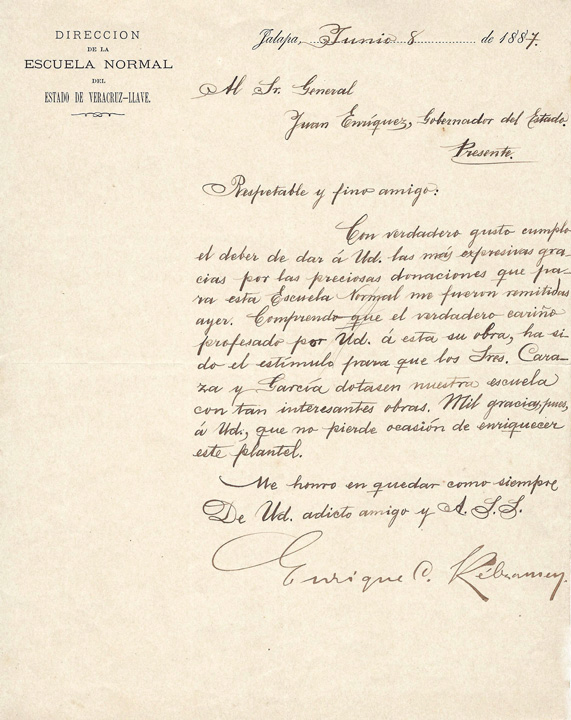 DIRECCION
DE LA
ESCUELA NORMAL
DEL
ESTADO DE VERACRUZ-LLAVE.
Jalapa, Junio 8 de 1887.
Al Sr. General
Juan Enríquez, Gobernador del Estado.
Presente.
Respetable y fino amigo:
Con verdadero gusto cumplo
el deber de dar á Ud. las más expresivas gra-
cias por las preciosas donaciones que pa-
ra esta Escuela Normal me fueron remitidas
ayer. Comprendo que el verdadero cariño
profesado por Ud. á esta su obra, ha si-
do el estímulo para que los Sres. Cara-
za y García dotasen nuestra escuela
con tan interesantes obras. Mil gracias, pues,
á Ud., que no pierde ocasión de enriquecer
este plantel.
Me honro en quedar como siempre
De Ud. adicto amigo y A. S. S.
Enrique C. Rébsamen.